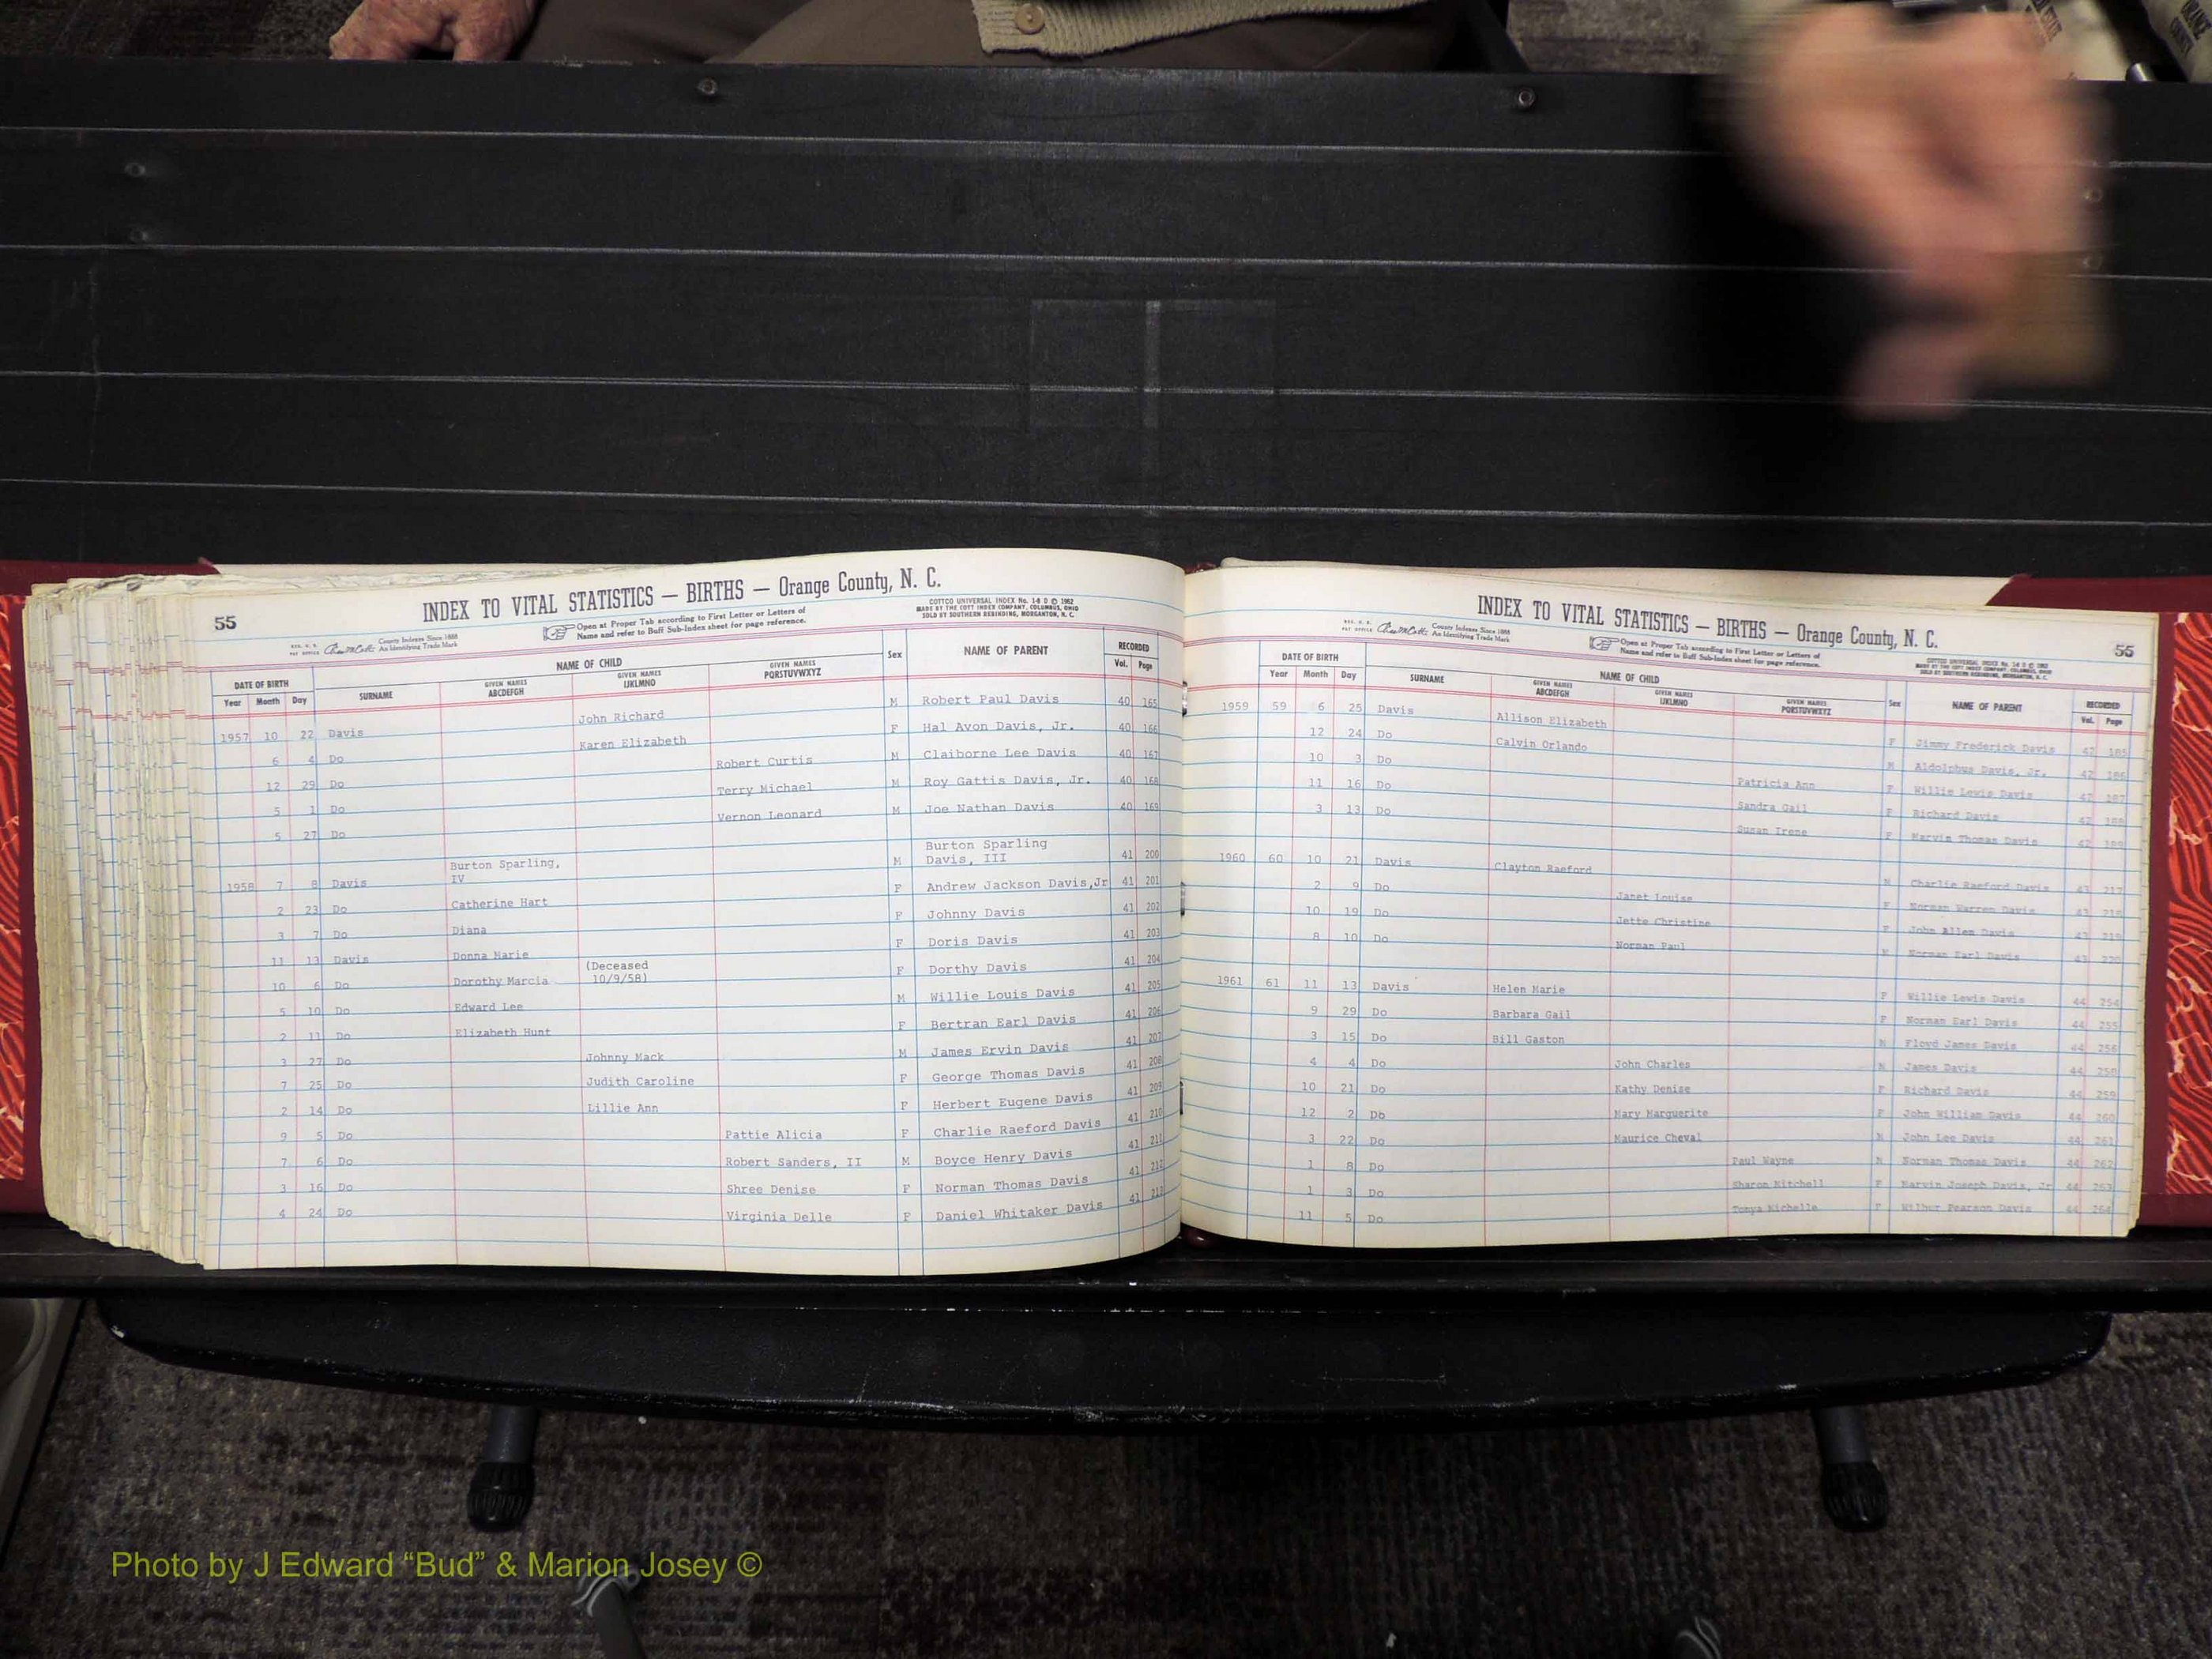 55
INDEX TO VITAL STATISTICS — BIRTHS — Orange County, N. C.
COTTCO UNIVERSAL INDEX No. 1-8 D © 1962
MADE BY THE COTT INDEX COMPANY, COLUMBUS, OHIO
SOLD BY SOUTHERN REBINDING, MORGANTON, N. C.
County Indexes Since 1888
An Identifying Trade Mark
Open at Proper Tab according to First Letter or Letters of
Name and refer to Buff Sub-Index sheet for page reference.
DATE OF BIRTH NAME OF CHILD Sex NAME OF PARENT RECORDED
Year Month Day SURNAME GIVEN NAMES ABCDEFGH GIVEN NAMES IJKLMNO GIVEN NAMES PQRSTUVWXYZ Vol. Page
1957 10 22 Davis John Richard M Robert Paul Davis 40 165
6 4 Do Karen Elizabeth F Hal Avon Davis, Jr. 40 166
12 29 Do Robert Curtis M Claiborne Lee Davis 40 167
5 1 Do Terry Michael M Roy Gattis Davis, Jr. 40 168
5 27 Do Vernon Leonard M Joe Nathan Davis 40 169
1958 7 8 Davis Burton Sparling, IV M Burton Sparling Davis, III 41 200
2 23 Do Catherine Hart F Andrew Jackson Davis,Jr 41 201
3 7 Do Diana F Johnny Davis 41 202
11 13 Davis Donna Marie F Doris Davis 41 203
10 6 Do Dorothy Marcia (Deceased 10/9/58) F Dorthy Davis 41 204
5 10 Do Edward Lee M Willie Louis Davis 41 205
2 11 Do Elizabeth Hunt F Bertran Earl Davis 41 206
3 27 Do Johnny Mack M James Ervin Davis 41 207
7 25 Do Judith Caroline F George Thomas Davis 41 208
2 14 Do Lillie Ann F Herbert Eugene Davis 41 209
9 5 Do Pattie Alicia F Charlie Raeford Davis 41 210
7 6 Do Robert Sanders, II M Boyce Henry Davis 41 211
3 16 Do Shree Denise F Norman Thomas Davis 41 212
4 24 Do Virginia Delle F Daniel Whitaker Davis 41 213
INDEX TO VITAL STATISTICS — BIRTHS — Orange County, N. C.
55
County Indexes Since 1888
An Identifying Trade Mark
Open at Proper Tab according to First Letter or Letters of
Name and refer to Buff Sub-Index sheet for page reference.
DATE OF BIRTH NAME OF CHILD Sex NAME OF PARENT RECORDED
Year Month Day SURNAME GIVEN NAMES ABCDEFGH GIVEN NAMES IJKLMNO GIVEN NAMES PQRSTUVWXYZ Vol. Page
1959 59 6 25 Davis Allison Elizabeth F Jimmy Frederick Davis 42 185
12 24 Do Calvin Orlando M Aldolphus Davis, Jr. 42 186
10 3 Do Patricia Ann F Willie Lewis Davis 42 187
11 16 Do Sandra Gail F Richard Davis 42 188
3 13 Do Susan Irene F Marvin Thomas Davis 42 189
1960 60 10 21 Davis Clayton Raeford M Charlie Raeford Davis 43 217
2 9 Do Janet Louise F Norman Warren Davis 43 218
10 19 Do Jette Christine F John Allen Davis 43 219
8 10 Do Norman Paul M Norman Earl Davis 43 220
1961 61 11 13 Davis Helen Marie F Willie Lewis Davis 44 254
9 29 Do Barbara Gail F Norman Earl Davis 44 255
3 15 Do Bill Gaston M Floyd James Davis 44 256
4 4 Do John Charles M James Davis 44 258
10 21 Do Kathy Denise F Richard Davis 44 259
12 2 Db Mary Marguerite F John William Davis 44 260
3 22 Do Maurice Cheval M John Lee Davis 44 261
1 8 Do Paul Wayne M Norman Thomas Davis 44 262
1 3 Do Sharon Mitchell F Marvin Joseph Davis, Jr 44 263
11 5 Do Tonya Michelle F Wilbur Pearson Davis 44 264
Photo by J Edward “Bud” & Marion Josey ©